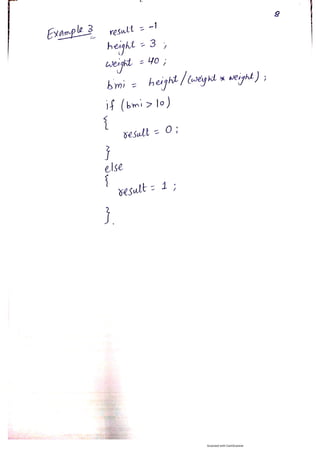 8
Example 3 result = -1
height = 3 ;
weight = 40 ;
bmi = height / (weight * weight) ;
if (bmi > 10)
{
result = 0 ;
}
else
{
result = 1 ;
}.
Scanned with CamScanner